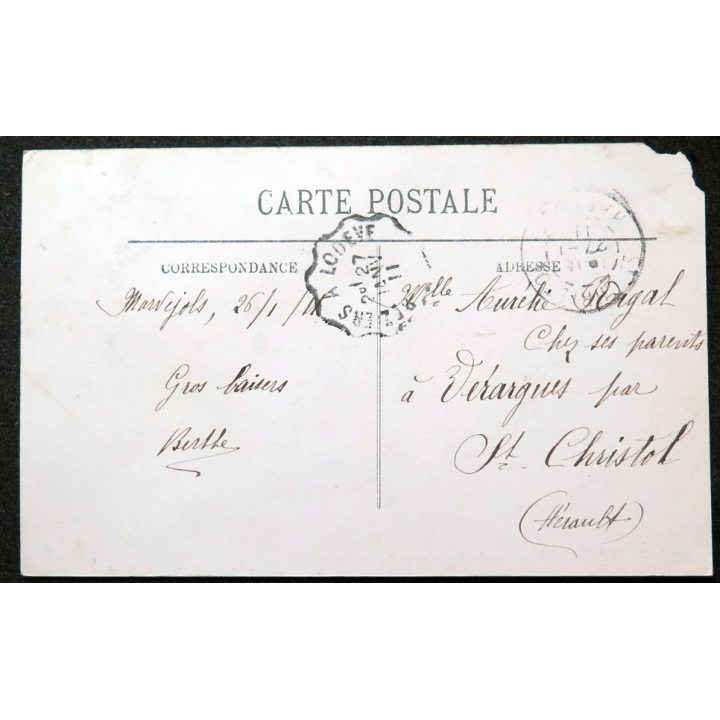 CARTE POSTALE
CORRESPONDANCE
ADRESSE
Marvejols, 26/1/11
Gros baisers
Berthe
Melle Aurélie Ragal
Chez ses parents
à Vérargues par
St. Christol
(Hérault)
ERS A LODEVE
27
JANV
11